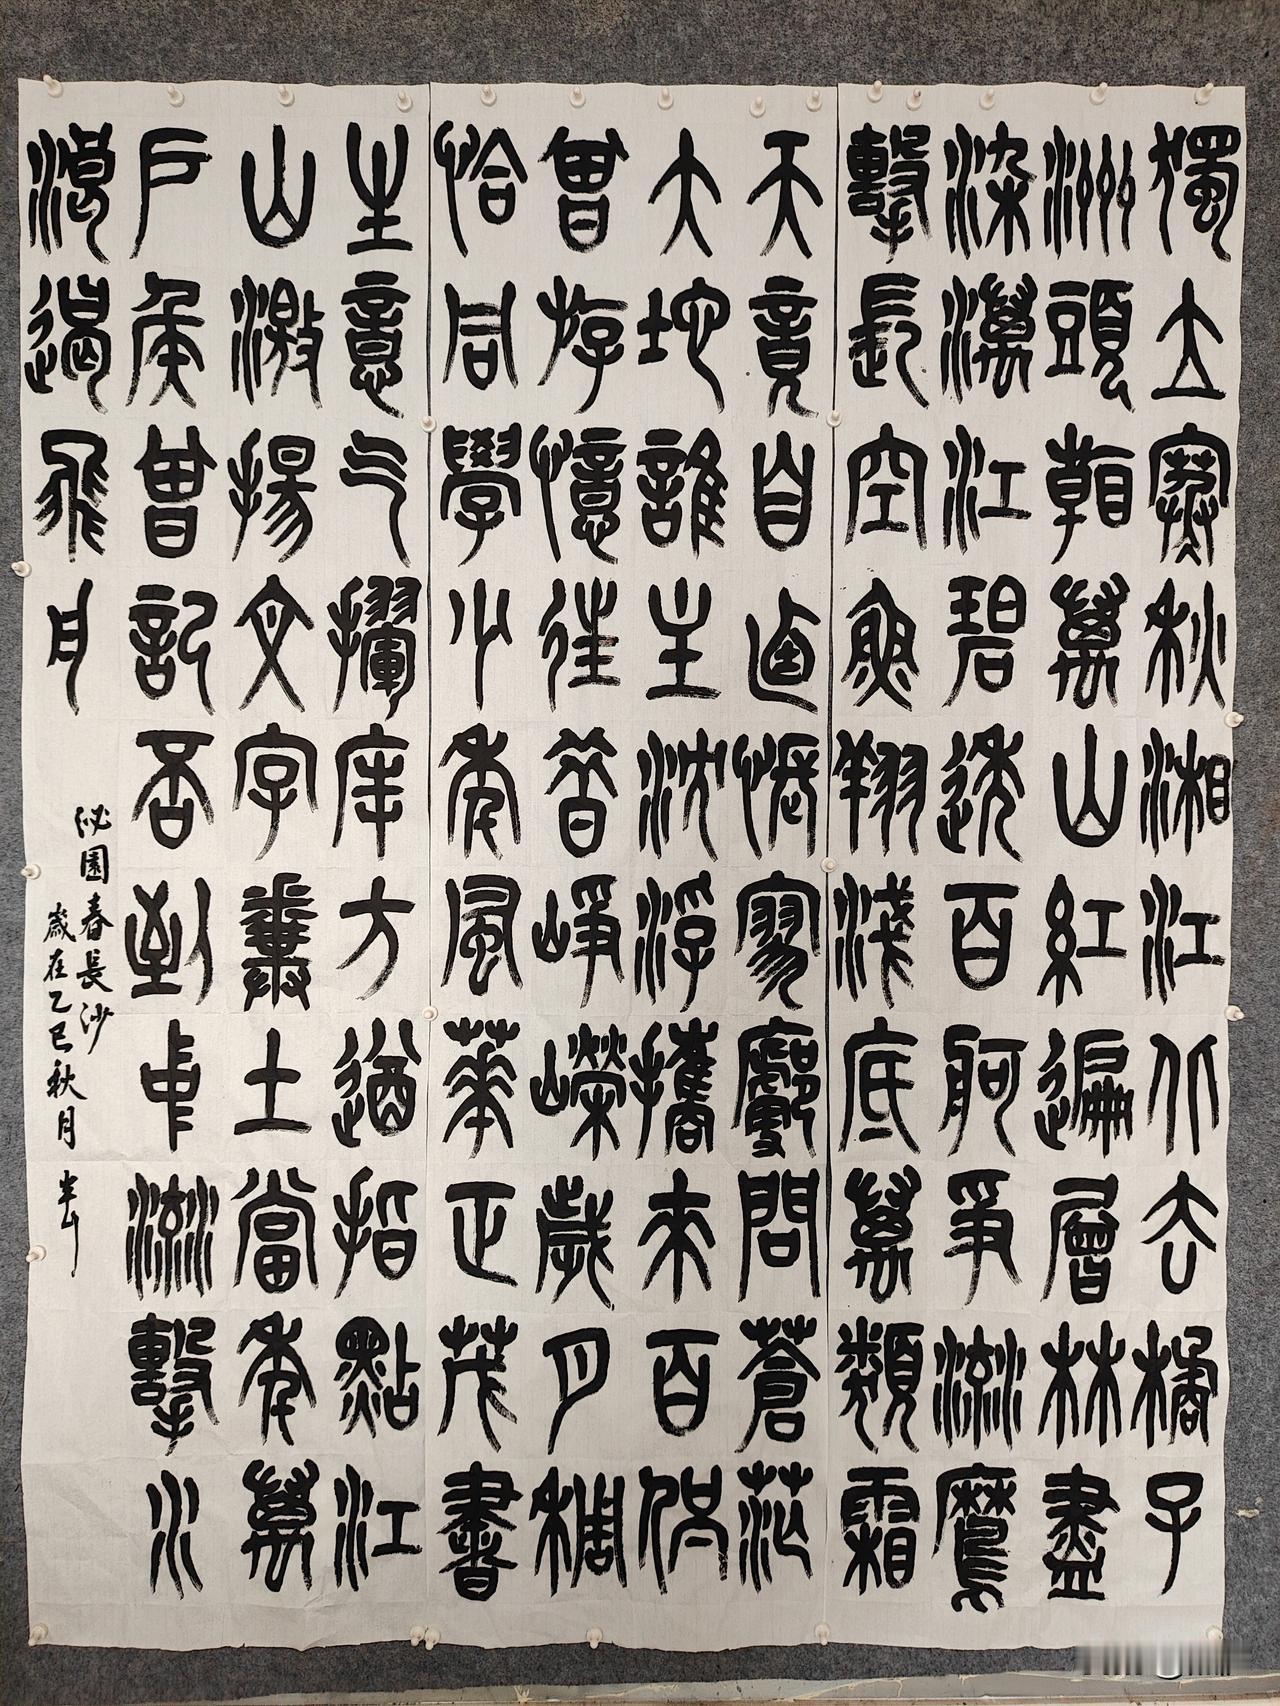 獨立寒秋湘江北去橘子
洲頭看萬山紅遍層林盡
染漫江碧透百舸爭流鷹
擊長空魚翔淺底萬類霜
天竟自由悵寥廓問蒼茫
大地誰主沈浮攜來百侶
曾游憶往昔崢嶸歲月稠
恰同學少年風華正茂書
生意气揮斥方遒指點江
山激揚文字糞土當年萬
戶侯曾記否到中流擊水
浪遏飛舟
沁園春長沙
歲在乙巳秋月